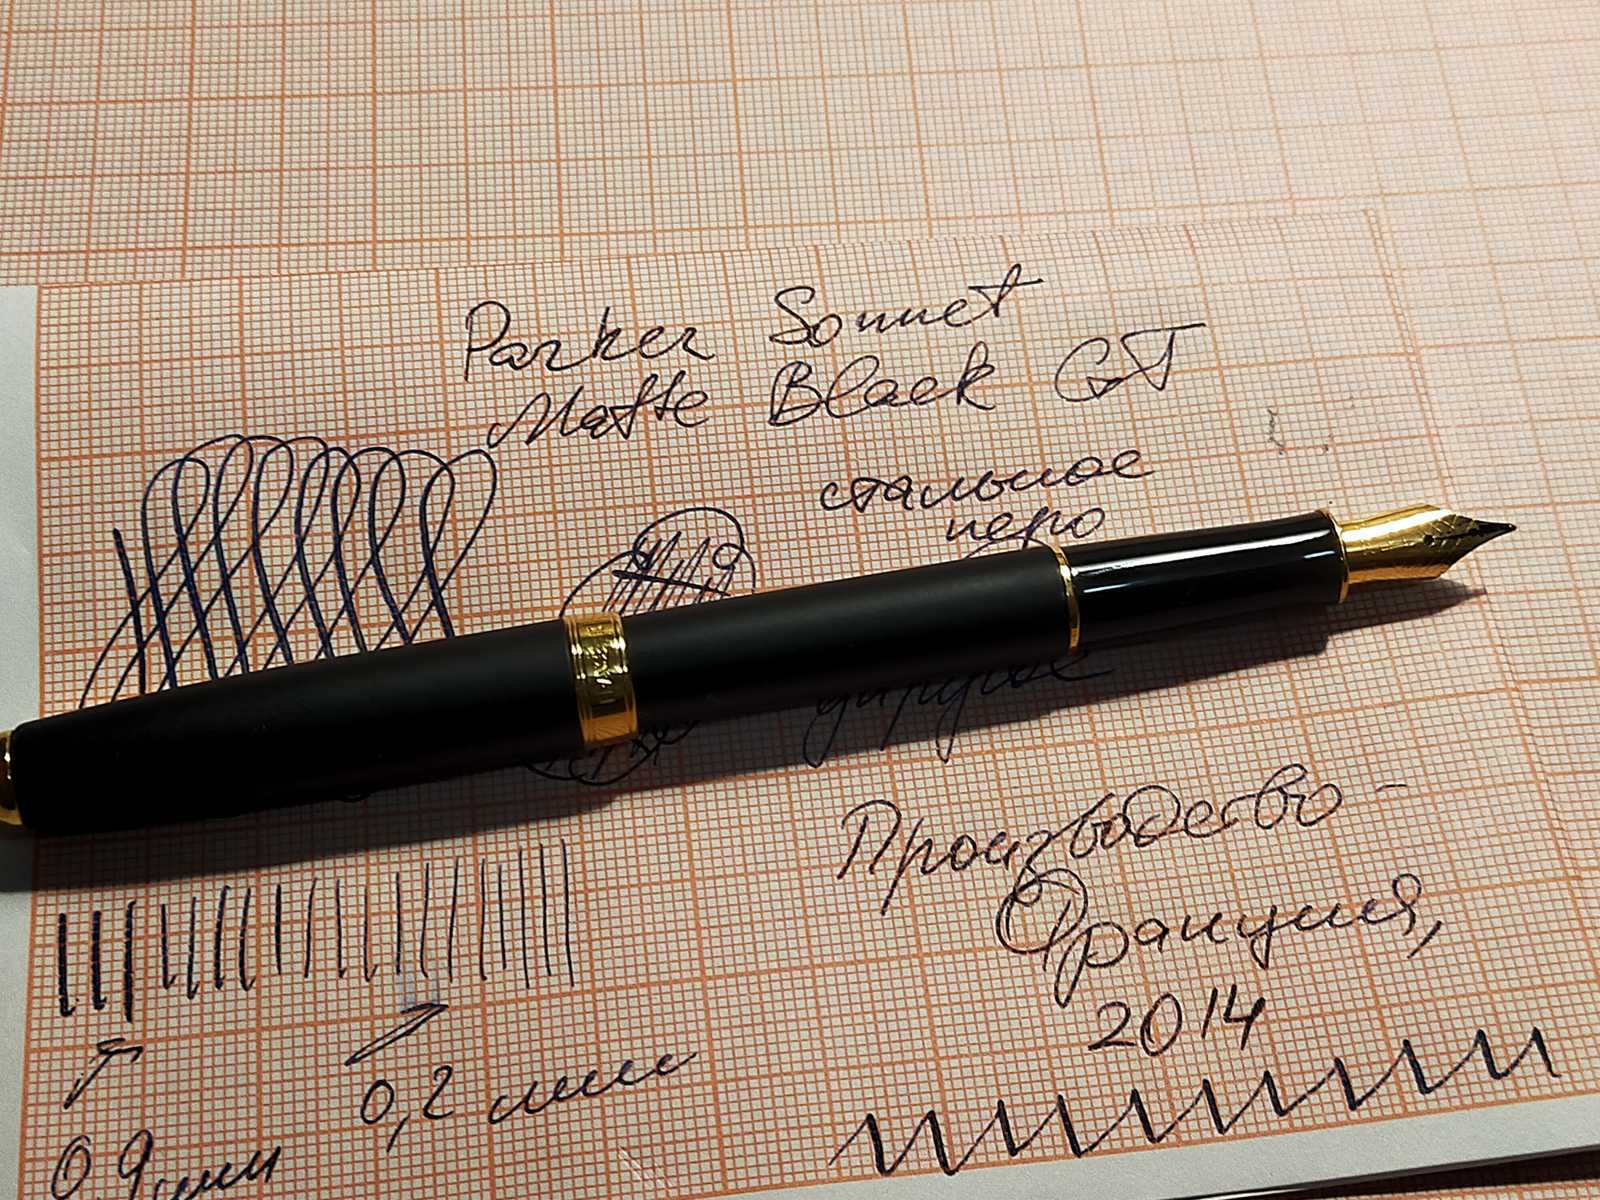 Parker Sonnet
Matte Black GT
стальное
перо
Производство -
Франция,
2014
0,2 мм
0,9 мм